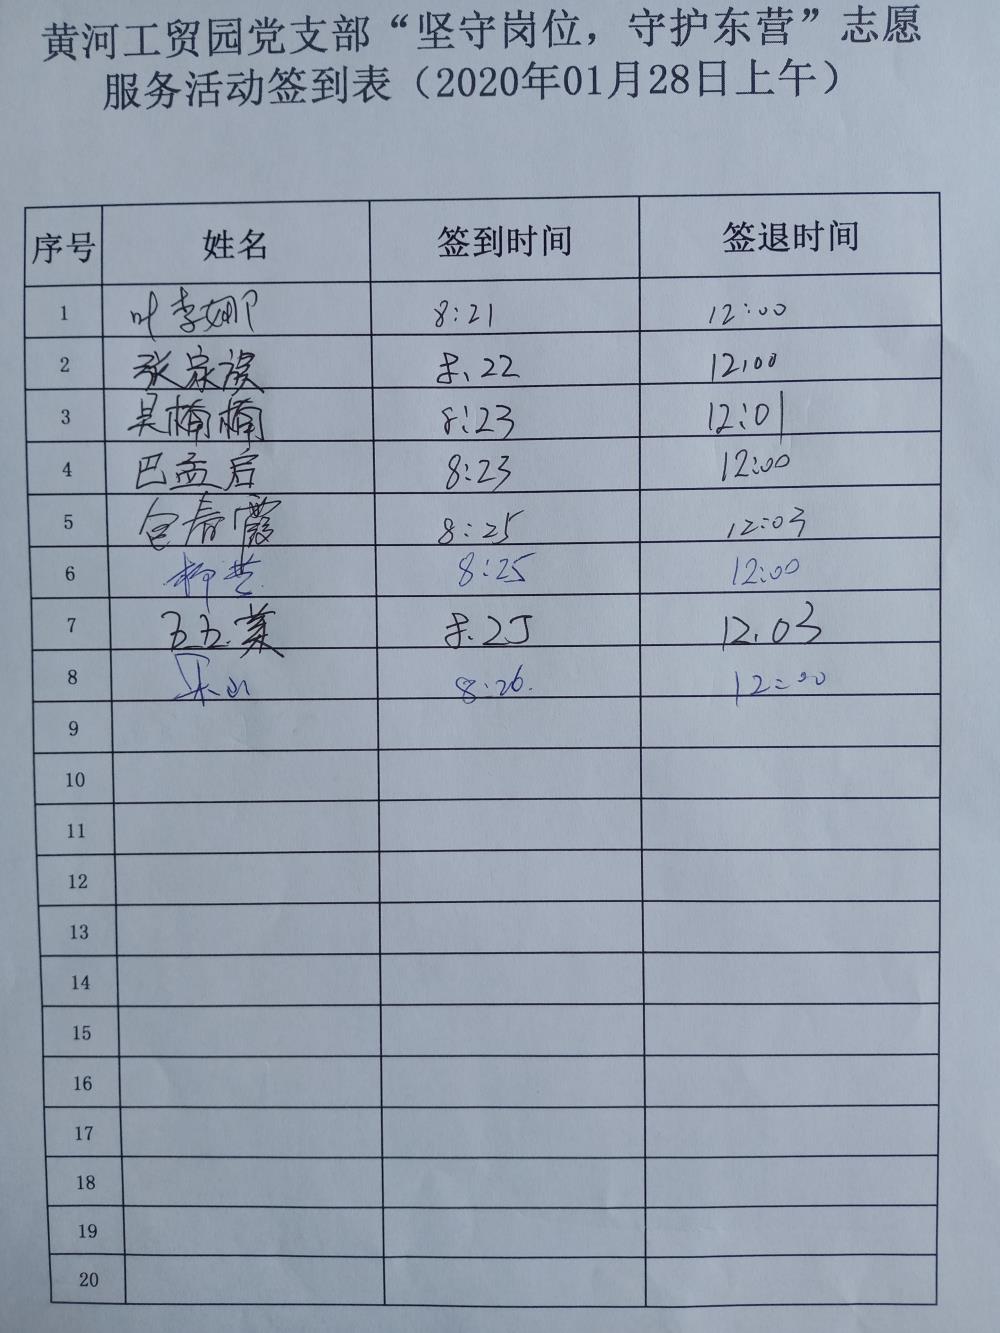 黄河工贸园党支部“坚守岗位，守护东营”志愿
服务活动签到表（2020年01月28日上午）
序号 姓名 签到时间 签退时间
1 叶李娜 8:21 12:00
2 张家 8.22 12:00
3 吴楠楠 8:23 12:01
4 巴孟启 8:23 12:00
5 包春霞 8:25 12:03
6 8:25 12:00
7 8.25 12.03
8 8:26. 12:00
9
10
11
12
13
14
15
16
17
18
19
20